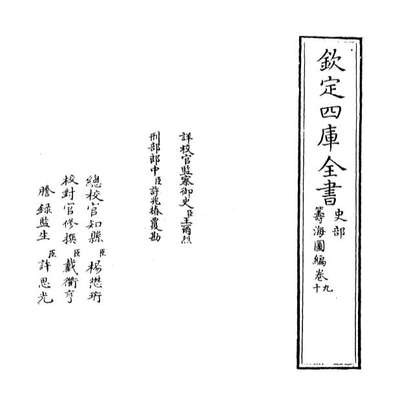 欽定四庫全書
史部
籌海圖編卷九
十
詳校官監察御史臣王爾烈
刑部郎中臣許兆椿覆勘
總校官知縣臣楊懋珩
校對官修撰臣戴衢亨
謄錄監生臣許思光